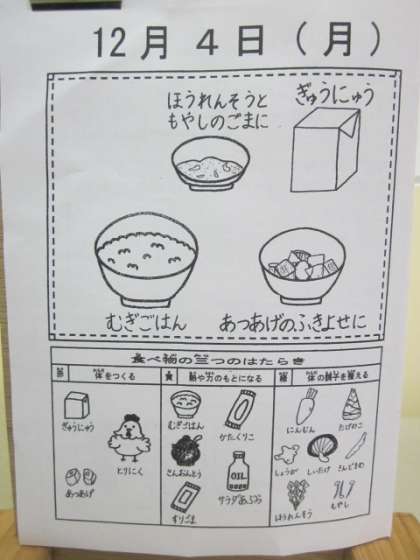 12月4日(月)
ほうれんそうと
もやしのごまに
ぎゅうにゅう
むぎごはん
あつあげのふきよせに
食べ物の三つのはたらき
赤 体をつくる
黄 熱や力のもとになる
緑 体の調子を整える
ぎゅうにゅう
とりにく
あつあげ
むぎごはん
かたくりこ
さんおんとう
サラダあぶら
すりごま
OIL
にんじん
たけのこ
しょうが
しいたけ
さんどまめ
ほうれんそう
もやし